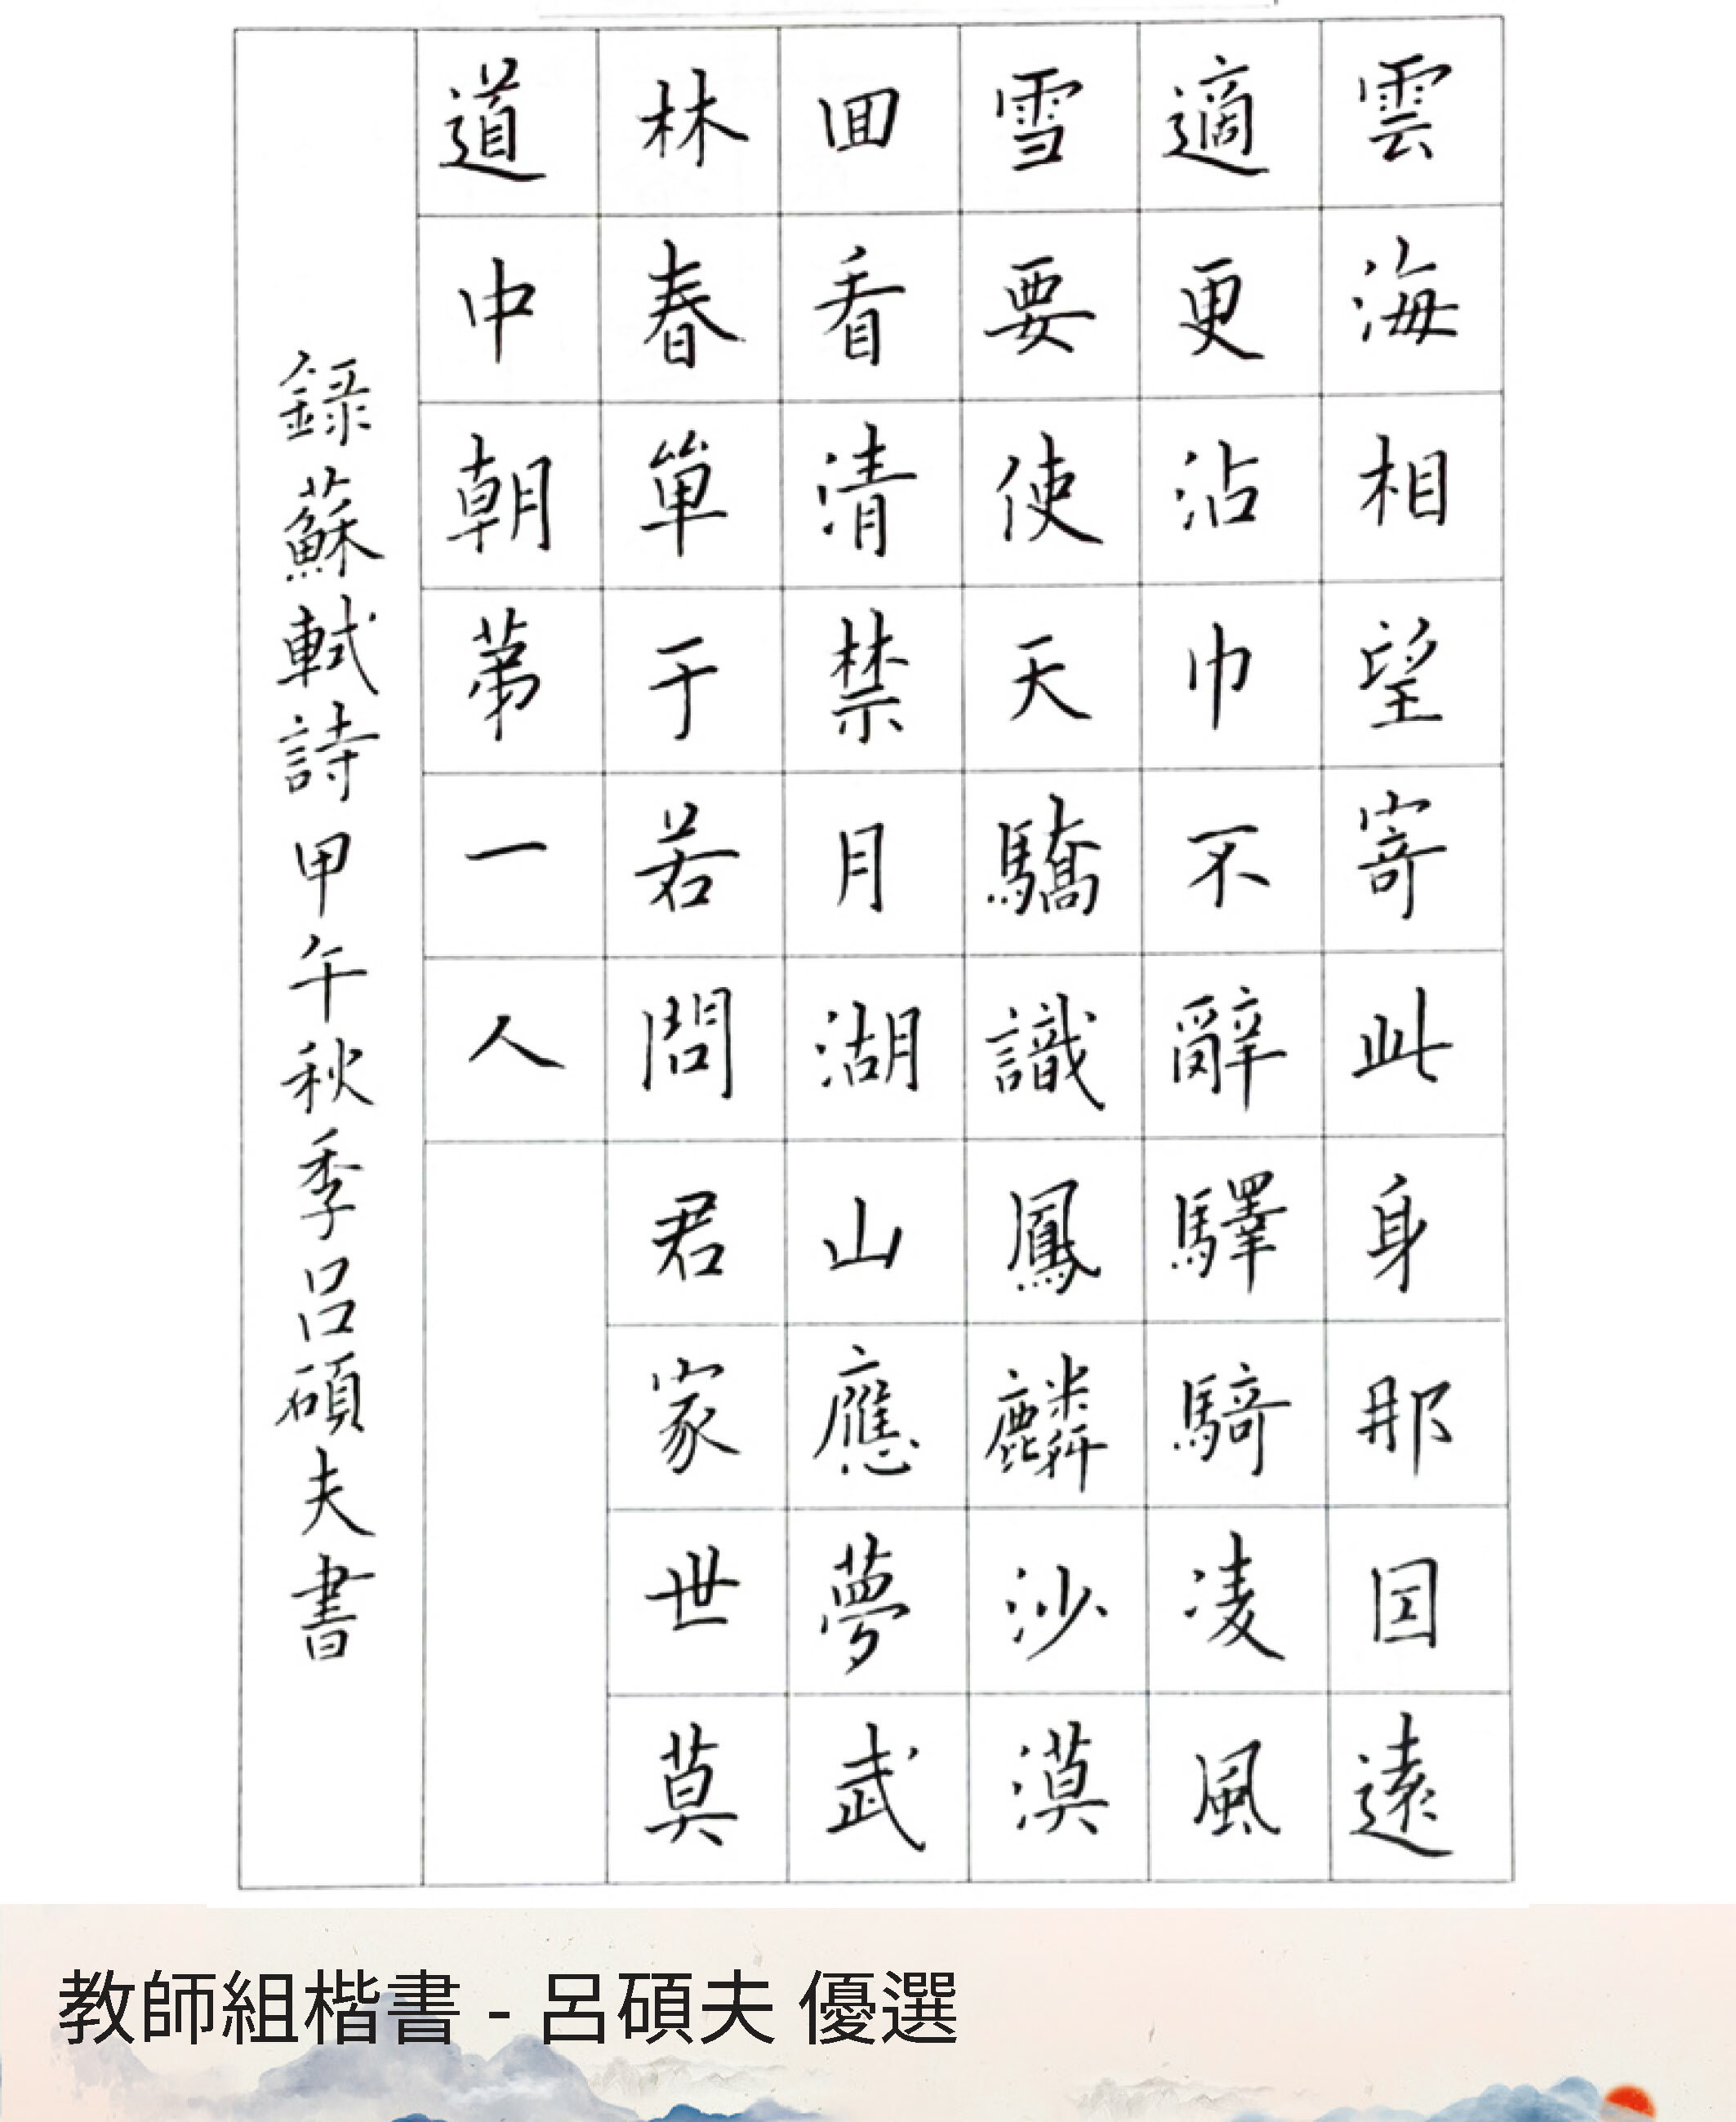 雲海相望寄此身那因遠
適更沾巾不辭驛騎凌風
雪要使天驕識鳳麟沙漠
回看清禁月湖山應夢武
林春單于若問君家世莫
道中朝第一人
錄蘇軾詩甲午秋季呂碩夫書
教師組楷書 - 呂碩夫 優選